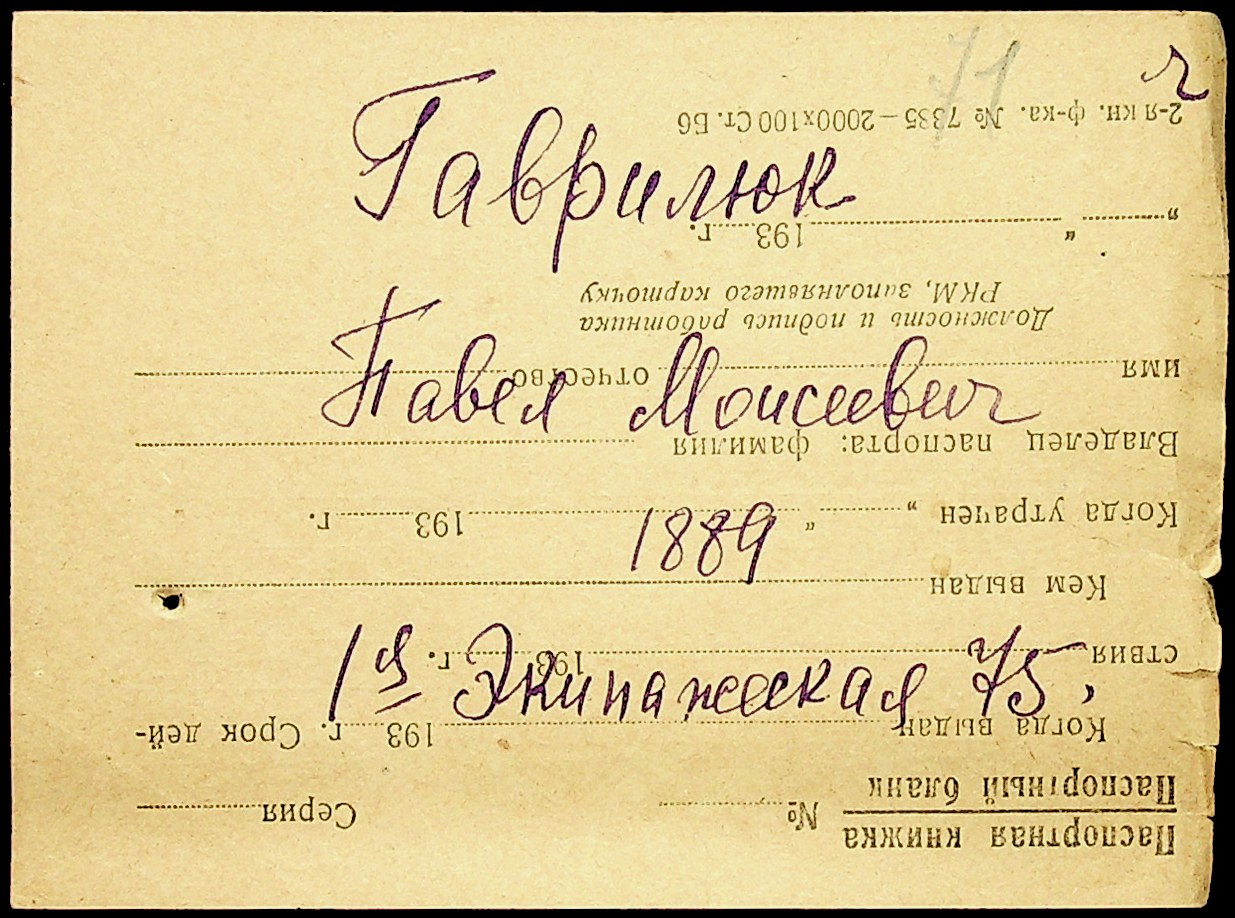 71
ч
Гаврилюк
Павел Моисеевич
1889
1я Экипажеская 75,
Паспортная книжка
Паспортный бланк
№ Серия
Когда выдан 193 г. Срок дей-
ствия 193 г.
Кем выдан
Когда утрачен „ “ 193 г.
Владелец паспорта: фамилия
имя отчество
Должность и подпись работника
РКМ, заполнявшего карточку
„ “ 193 г.
2-я кн. ф-ка. № 7335—2000х100 Ст. Б6